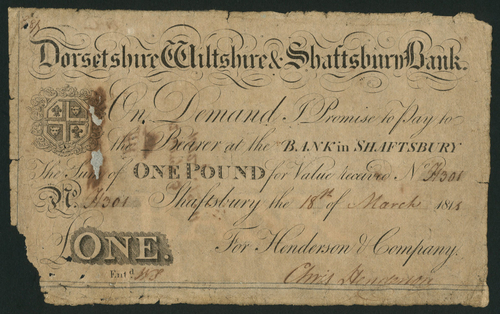 Dorsetshire Wiltshire & Shaftsbury Bank.
On Demand I Promise to Pay to
the Bearer at the BANK in SHAFTSBURY
The Sum of ONE POUND for Value received No
No. Shaftsbury the 18th of March
£ONE. For Henderson & Company.
Entd. Chrisr Henderson